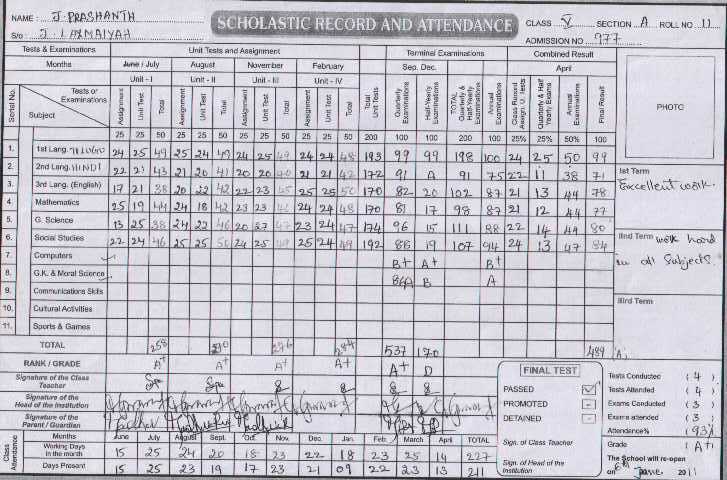 NAME : J. PRASHANTH
S/o : J. LAXMAIYAH
SCHOLASTIC RECORD AND ATTENDANCE
CLASS V SECTION A ROLL NO 11
ADMISSION NO 977
Tests & Examinations Unit Tests and Assignment Terminal Examinations Combined Result
Months June / July August November February Sep. Dec. April
Unit - I Unit - II Unit - III Unit - IV
Serial No. Tests or Examinations Subject Assignment Unit Test Total Assignment Unit Test Total Assignment Unit Test Total Assignment Unit Test Total Total Unit Tests Quarterly Examinations Half-Yearly Examinations TOTAL Quarterly & Half-Yearly Examinations Annual Examinations Class Record Assign. U. Tests Quarterly & Half Yearly Exams Annual Examinations Final Result
25 25 50 25 25 50 25 25 50 25 25 50 200 100 100 200 100 25% 25% 50% 100
PHOTO
1. 1st Lang. TELUGU 24 25 49 25 24 49 24 25 49 24 24 48 193 99 99 198 100 24 25 50 99
2. 2nd Lang. HINDI 22 21 43 21 20 41 20 20 40 21 21 42 172 91 A 91 75 22 11 38 71
3. 3rd Lang. (English) 17 21 38 20 22 42 22 23 45 25 25 50 170 82 20 102 87 21 13 44 78
4. Mathematics 25 19 44 24 18 42 23 23 46 24 24 48 170 81 17 98 87 21 12 44 77
5. G. Science 13 25 38 24 22 46 20 27 47 23 24 47 174 96 15 111 88 22 14 44 80
6. Social Studies 22 24 46 25 25 50 24 25 49 25 24 49 192 88 19 107 94 24 13 47 84
7. Computers B+ A+ B+
8. G.K. & Moral Science B A
9. Communications Skills
10. Cultural Activities
11. Sports & Games
Ist Term
Excellent work.
IInd Term work hard
in all Subjects
IIIrd Term
TOTAL 258 276 284 537 170 489
RANK / GRADE A+ A+ A+ A+ A+ D
Signature of the Class Teacher
Signature of the Head of the Institution
Signature of the Parent / Guardian
FINAL TEST
PASSED
PROMOTED
DETAINED
Sign. of Class Teacher
Sign. of Head of the Institution
Tests Conducted ( 4 )
Tests Attended ( 4 )
Exams Conducted ( 3 )
Exams attended ( 3 )
Attendance% ( 93% )
Grade ( A+ )
The School will re-open
on 8th June 2011
Class Attendance Months June July August Sept. Oct. Nov. Dec. Jan. Feb. March April TOTAL
Working Days in the month 15 25 24 20 18 23 22 18 23 25 14 227
Days Present 15 25 23 19 17 23 21 09 22 23 13 211